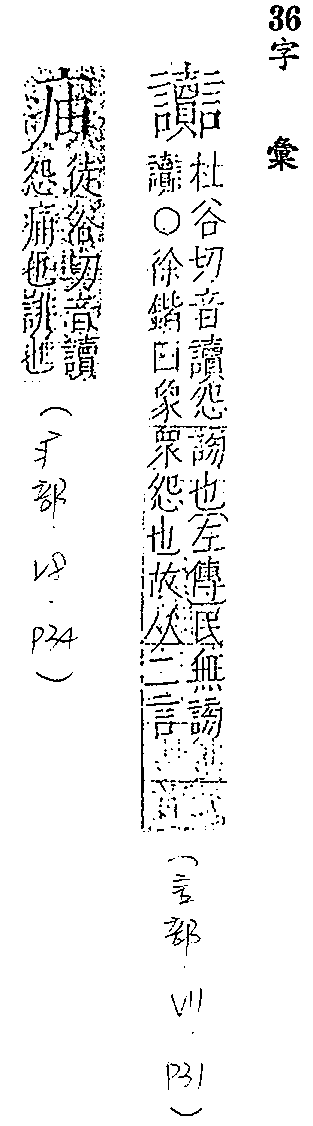 36字彙
讟
杜谷切音讀怨謗也左傳民無謗
讟○徐鍇曰象眾怨也故从二言
(言部.V11.P31)
徒谷切音讀
怨痛也誹也
(疒部.V8.P34)